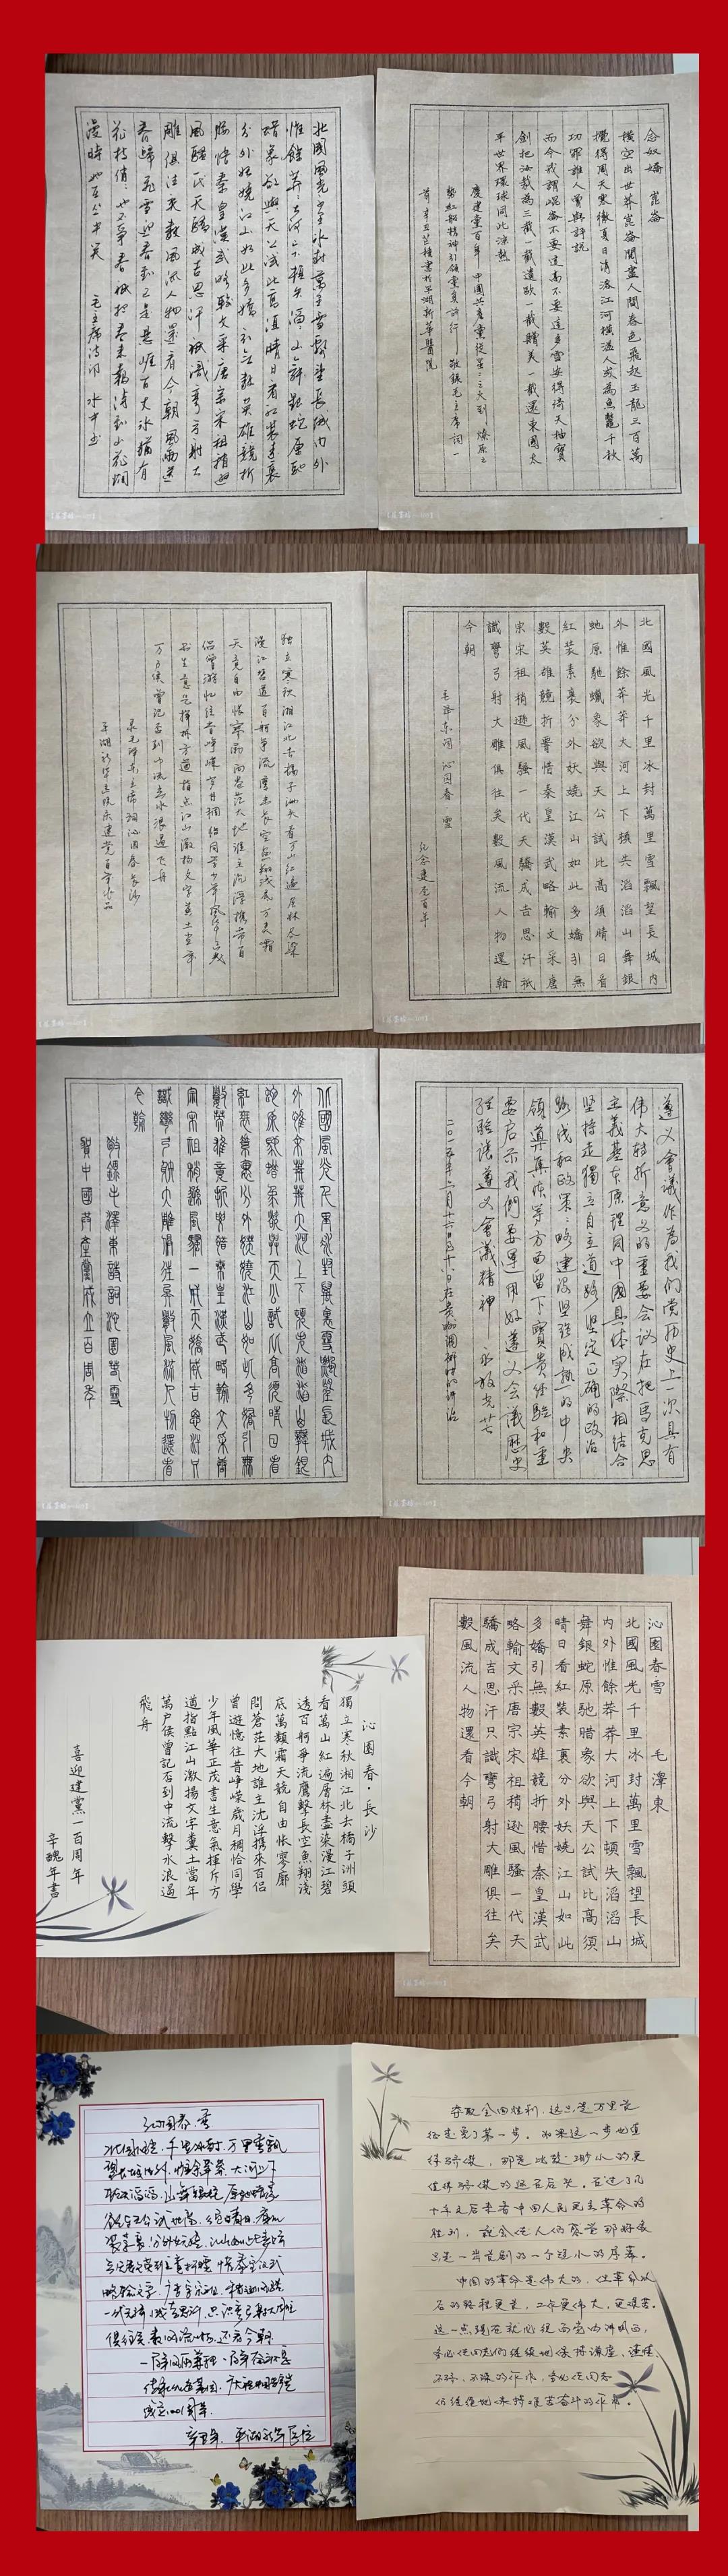 念奴嬌 崑崙
橫空出世莽崑崙閱盡人間春色飛起玉龍三百萬
攪得周天寒徹夏日消溶江河橫溢人或為魚鱉千秋
功罪誰人曾與評說
而今我謂崑崙不要這高不要這多雪安得倚天抽寶
劍把汝裁為三截一截遺歐一截贈美一截還東國太
平世界環球同此涼熱
慶建黨百年 中國共產黨從星星之火到 燎原之
勢紅船精神引領童真前行 敬錄毛主席詞一
首 辛丑 書於平湖新華醫院
北國風光千里冰封萬里雪飄望長城內外
惟餘莽莽大河上下頓失滔滔山舞銀蛇原馳
蠟象欲與天公試比高須晴日看紅裝素裹
分外妖嬈江山如此多嬌引無數英雄競折
腰惜秦皇漢武略輸文采唐宗宋祖稍遜
風騷一代天驕成吉思汗祇識彎弓射大
雕俱往矣數風流人物還看今朝風雨送
春歸飛雪迎春到已是懸崖百丈冰猶有
花枝俏俏也不爭春祇把春來報待到山花爛
漫時她在叢中笑 毛主席詩詞
北國風光千里冰封萬里雪飄望長城內
外惟餘莽莽大河上下頓失滔滔山舞銀
蛇原馳蠟象欲與天公試比高須晴日看
紅裝素裹分外妖嬈江山如此多嬌引無
數英雄競折要惜秦皇漢武略輸文采唐
宗宋祖稍遜風騷一代天驕成吉思汗祇
識彎弓射大雕俱往矣數風流人物還看
今朝
毛澤東詞 沁園春 雪 紀念建黨百年
獨立寒秋湘江北去橘子洲頭看萬山紅遍層林盡染
漫江碧透百舸爭流鷹擊長空魚翔淺底萬類霜
天競自由悵寥廓問蒼茫大地誰主沉浮攜來百
侶曾遊憶往昔崢嶸歲月稠恰同學少年風華正茂
書生意氣揮斥方遒指點江山激揚文字糞土當年
萬戶侯曾記否到中流擊水浪遏飛舟
錄毛澤東主席詞沁園春長沙
遵义會議作為我们党历史上一次具有
伟大转折意义的重要会议在把马克思
主義基本原理同中國具体实際相结合
坚持走獨立自主道路 坚定正确的政治
路线和政策策略建设坚强成熟的中央
領導集体等方面留下寶贵经验和重
要启示我們要運用好遵义會議歷史
经验讓遵义會議精神永放光芒
二〇一五年六月十六日至十八日在贵州调研时的讲话
北國風光千里冰封萬里雪飄望長城內
外惟余莽莽大河上下頓失滔滔山舞銀
蛇原馳蠟象欲與天公試比高須晴日看
紅裝素裹分外妖嬈江山如此多嬌引無
數英雄竟折腰惜秦皇漢武略輸文采唐
宗宋祖稍遜風騷一代天驕成吉思汗只
識彎弓射大雕俱往矣數風流人物還看
今朝
敬錄毛澤東詩詞沁園春雪
賀中國共產黨成立百周年
沁園春雪 毛澤東
北國風光千里冰封萬里雪飄望長城
內外惟餘莽莽大河上下頓失滔滔山
舞銀蛇原馳腊象欲與天公試比高須
晴日看紅裝素裹分外妖嬈江山如此
多嬌引無數英雄競折腰惜秦皇漢武
略輸文采唐宗宋祖稍遜風騷一代天
驕成吉思汗只識彎弓射大雕俱往矣
數風流人物還看今朝
沁園春·長沙
獨立寒秋湘江北去橘子洲頭
看萬山紅遍層林盡染漫江碧
透百舸爭流鷹擊長空魚翔淺
底萬類霜天競自由悵寥廓
問蒼茫大地誰主沈浮攜來百侶
曾遊憶往昔崢嶸歲月稠恰同學
少年風華正茂書生意氣揮斥方
遒指點江山激揚文字糞土當年
萬戶侯曾記否到中流擊水浪遏
飛舟
喜迎建黨一百周年
辛醜年書
沁园春·雪
北国风光,千里冰封,万里雪飘
望长城内外,惟余莽莽,大河上下
顿失滔滔,山舞银蛇,原驰蜡象
夺取全国胜利,这只是万里长
征走完了第一步。如果这一步也值
得骄傲,那是比较渺小的,更
值得骄傲的还在后头。在过了几
十年之后来看中国人民民主革命的
胜利,就会使人们感觉那好像
只是一出长剧的一个短小的序幕。
中国的革命是伟大的,但革命以
后的路程更长,工作更伟大,更艰苦。
这一点现在就必须向党内讲明白,
务必使同志们继续地保持谦虚、谨慎、
不骄、不躁的作风,务必使同志
们继续地保持艰苦奋斗的作风。